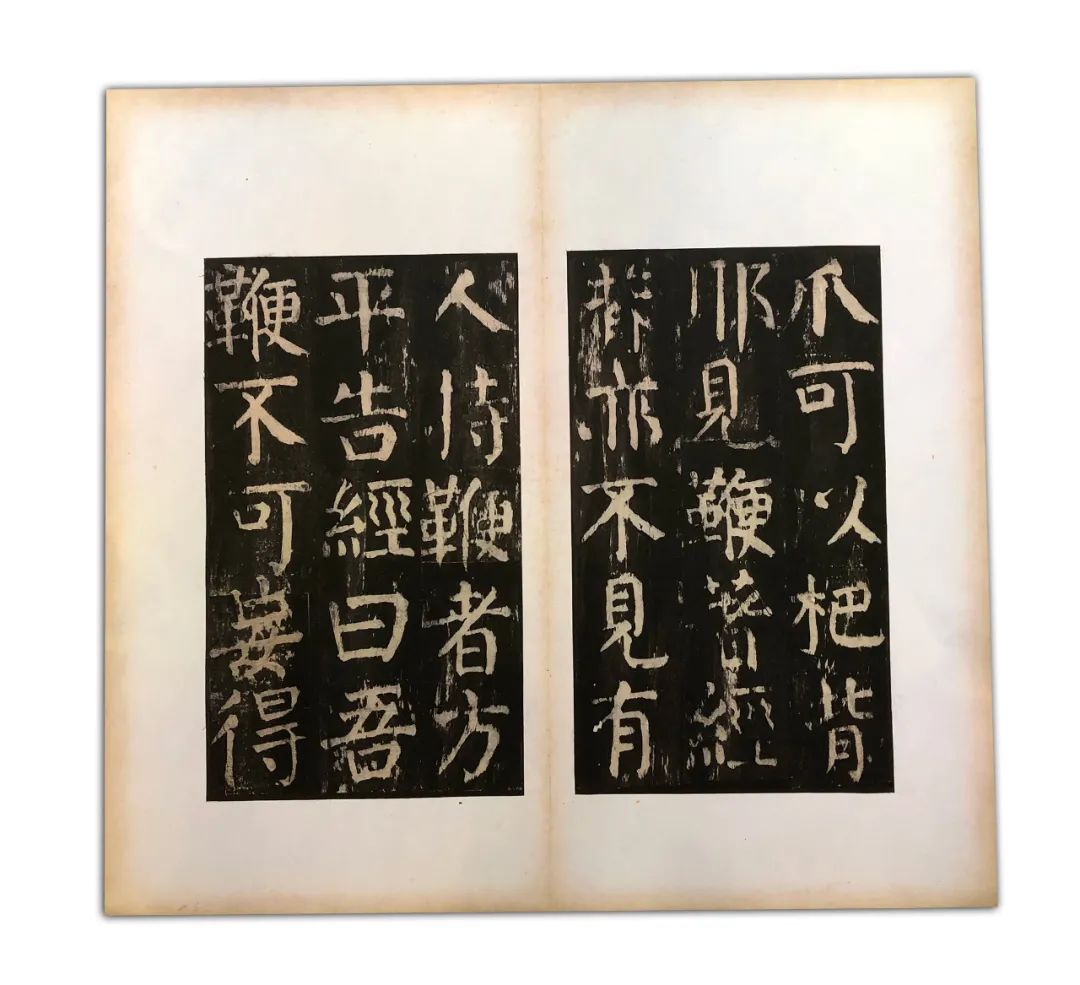 爪可以杷背
耶見鞭著經
亦不見有
人持鞭者方
平告經曰吾
鞭不可妄得